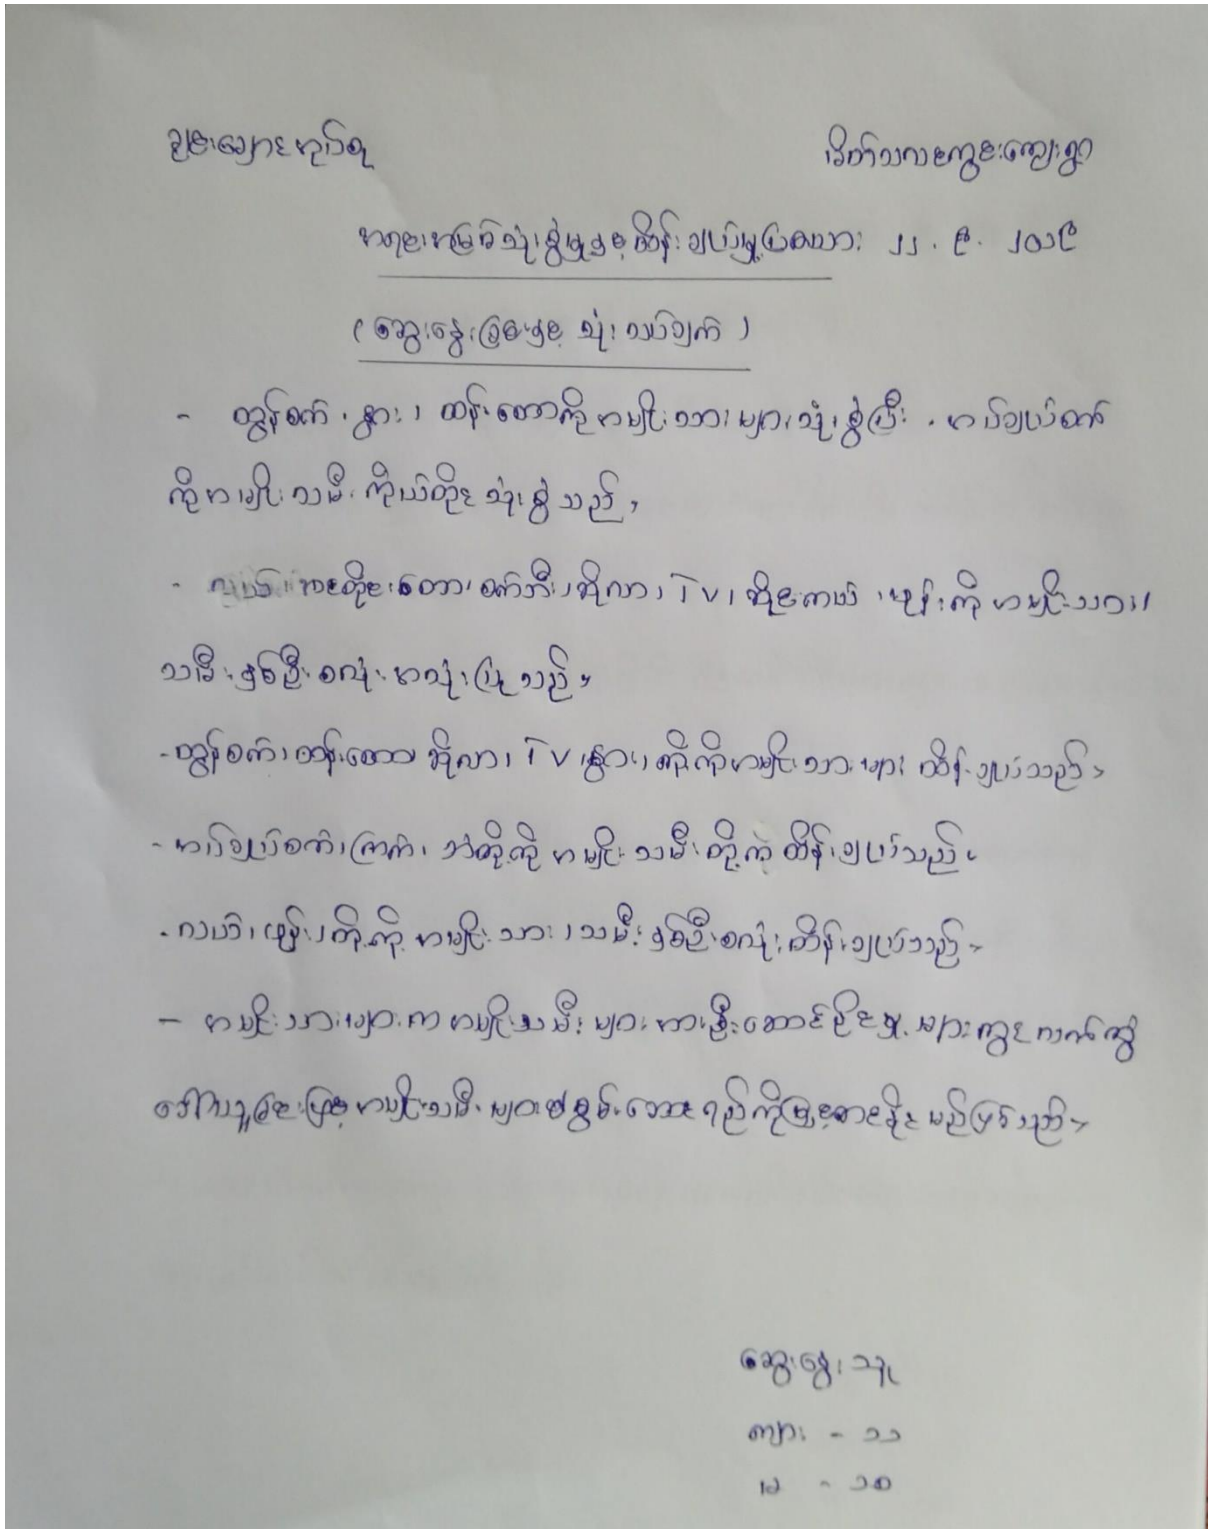 ချင်းချောင်းအုပ်စု မိတ်သလင်းကွင်းကျေးရွာ
အရင်းအမြစ်သုံးစွဲမှုနှင့်ထိန်းချုပ်မှုပြဇယား ၂၂.၉.၂၀၁၉
(ဆွေးနွေးခြင်းနှင့် သုံးသပ်ချက်)
- ထွန်စက်၊ နွား၊ ထန်းတောကိုအမျိုးသားများသုံးစွဲပြီး၊ အပ်ချုပ်စက်
ကိုအမျိုးသမီးကိုယ်တိုင်သုံးစွဲသည်။
- လယ်၊ စက်ဘီး၊ ဆိုလာ၊ TV၊ ဆိုင်ကယ်၊ ဖုန်းကိုအမျိုးသား၊
သမီးနှစ်ဦးစလုံးအသုံးပြုသည်။
- ထွန်စက်၊ ထန်းတော၊ ဆိုလာ၊ TV၊ နွား၊ တို့ကိုအမျိုးသားများ ထိန်းချုပ်သည်။
- အပ်ချုပ်စက်၊ ကြက်၊ ဘဲတို့ကို အမျိုးသမီးတို့က ထိန်းချုပ်သည်။
- လယ်၊ ဖုန်း၊ တို့ကို အမျိုးသား၊ သမီးနှစ်ဦးစလုံးထိန်းချုပ်သည်။
- အမျိုးသားများက အမျိုးသမီးများအားဦးဆောင်ဦးရွက်မှုများတွင်လက်တွဲ
ခေါ်ယူခြင်းဖြင့် အမျိုးသမီးများစွမ်းဆောင်ရည်ကိုမြှင့်တင်နိုင်မည်ဖြစ်သည်။
ဆွေးနွေးသူ
ကျား - ၁၁
မ - ၁၈